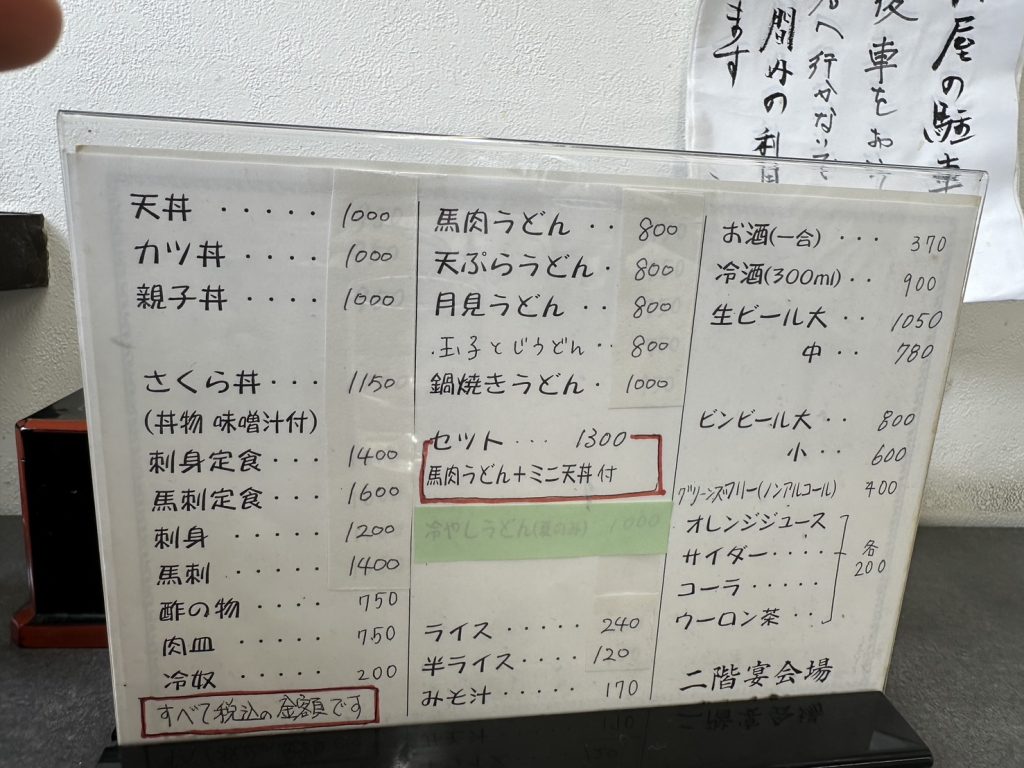 天丼 ····· 1000
カツ丼 ···· 1000
親子丼 ···· 1000
さくら丼 ··· 1150
(丼物 味噌汁付)
刺身定食 ··· 1400
馬刺定食 ··· 1600
刺身 ····· 1200
馬刺 ····· 1400
酢の物 ···· 750
肉皿 ····· 750
冷奴 ····· 200
すべて税込の金額です
馬肉うどん ·· 800
天ぷらうどん · 800
月見うどん ·· 800
玉子とじうどん ·· 800
鍋焼きうどん · 1000
セット ··· 1300
馬肉うどん+ミニ天丼付
冷やしうどん(夏のみ) 1000
ライス ····· 240
半ライス ···· 120
みそ汁 ···· 170
お酒(一合) ··· 370
冷酒(300ml) ·· 900
生ビール大 ·· 1050
中 ·· 780
ビンビール大 ·· 800
小 ·· 600
グリーンズフリー(ノンアルコール) 400
オレンジジュース
サイダー ····
コーラ ·····
ウーロン茶 ··
各
200
二階宴会場
屋の駐車
後 車をお
へ行かないで
間外の利用
ます